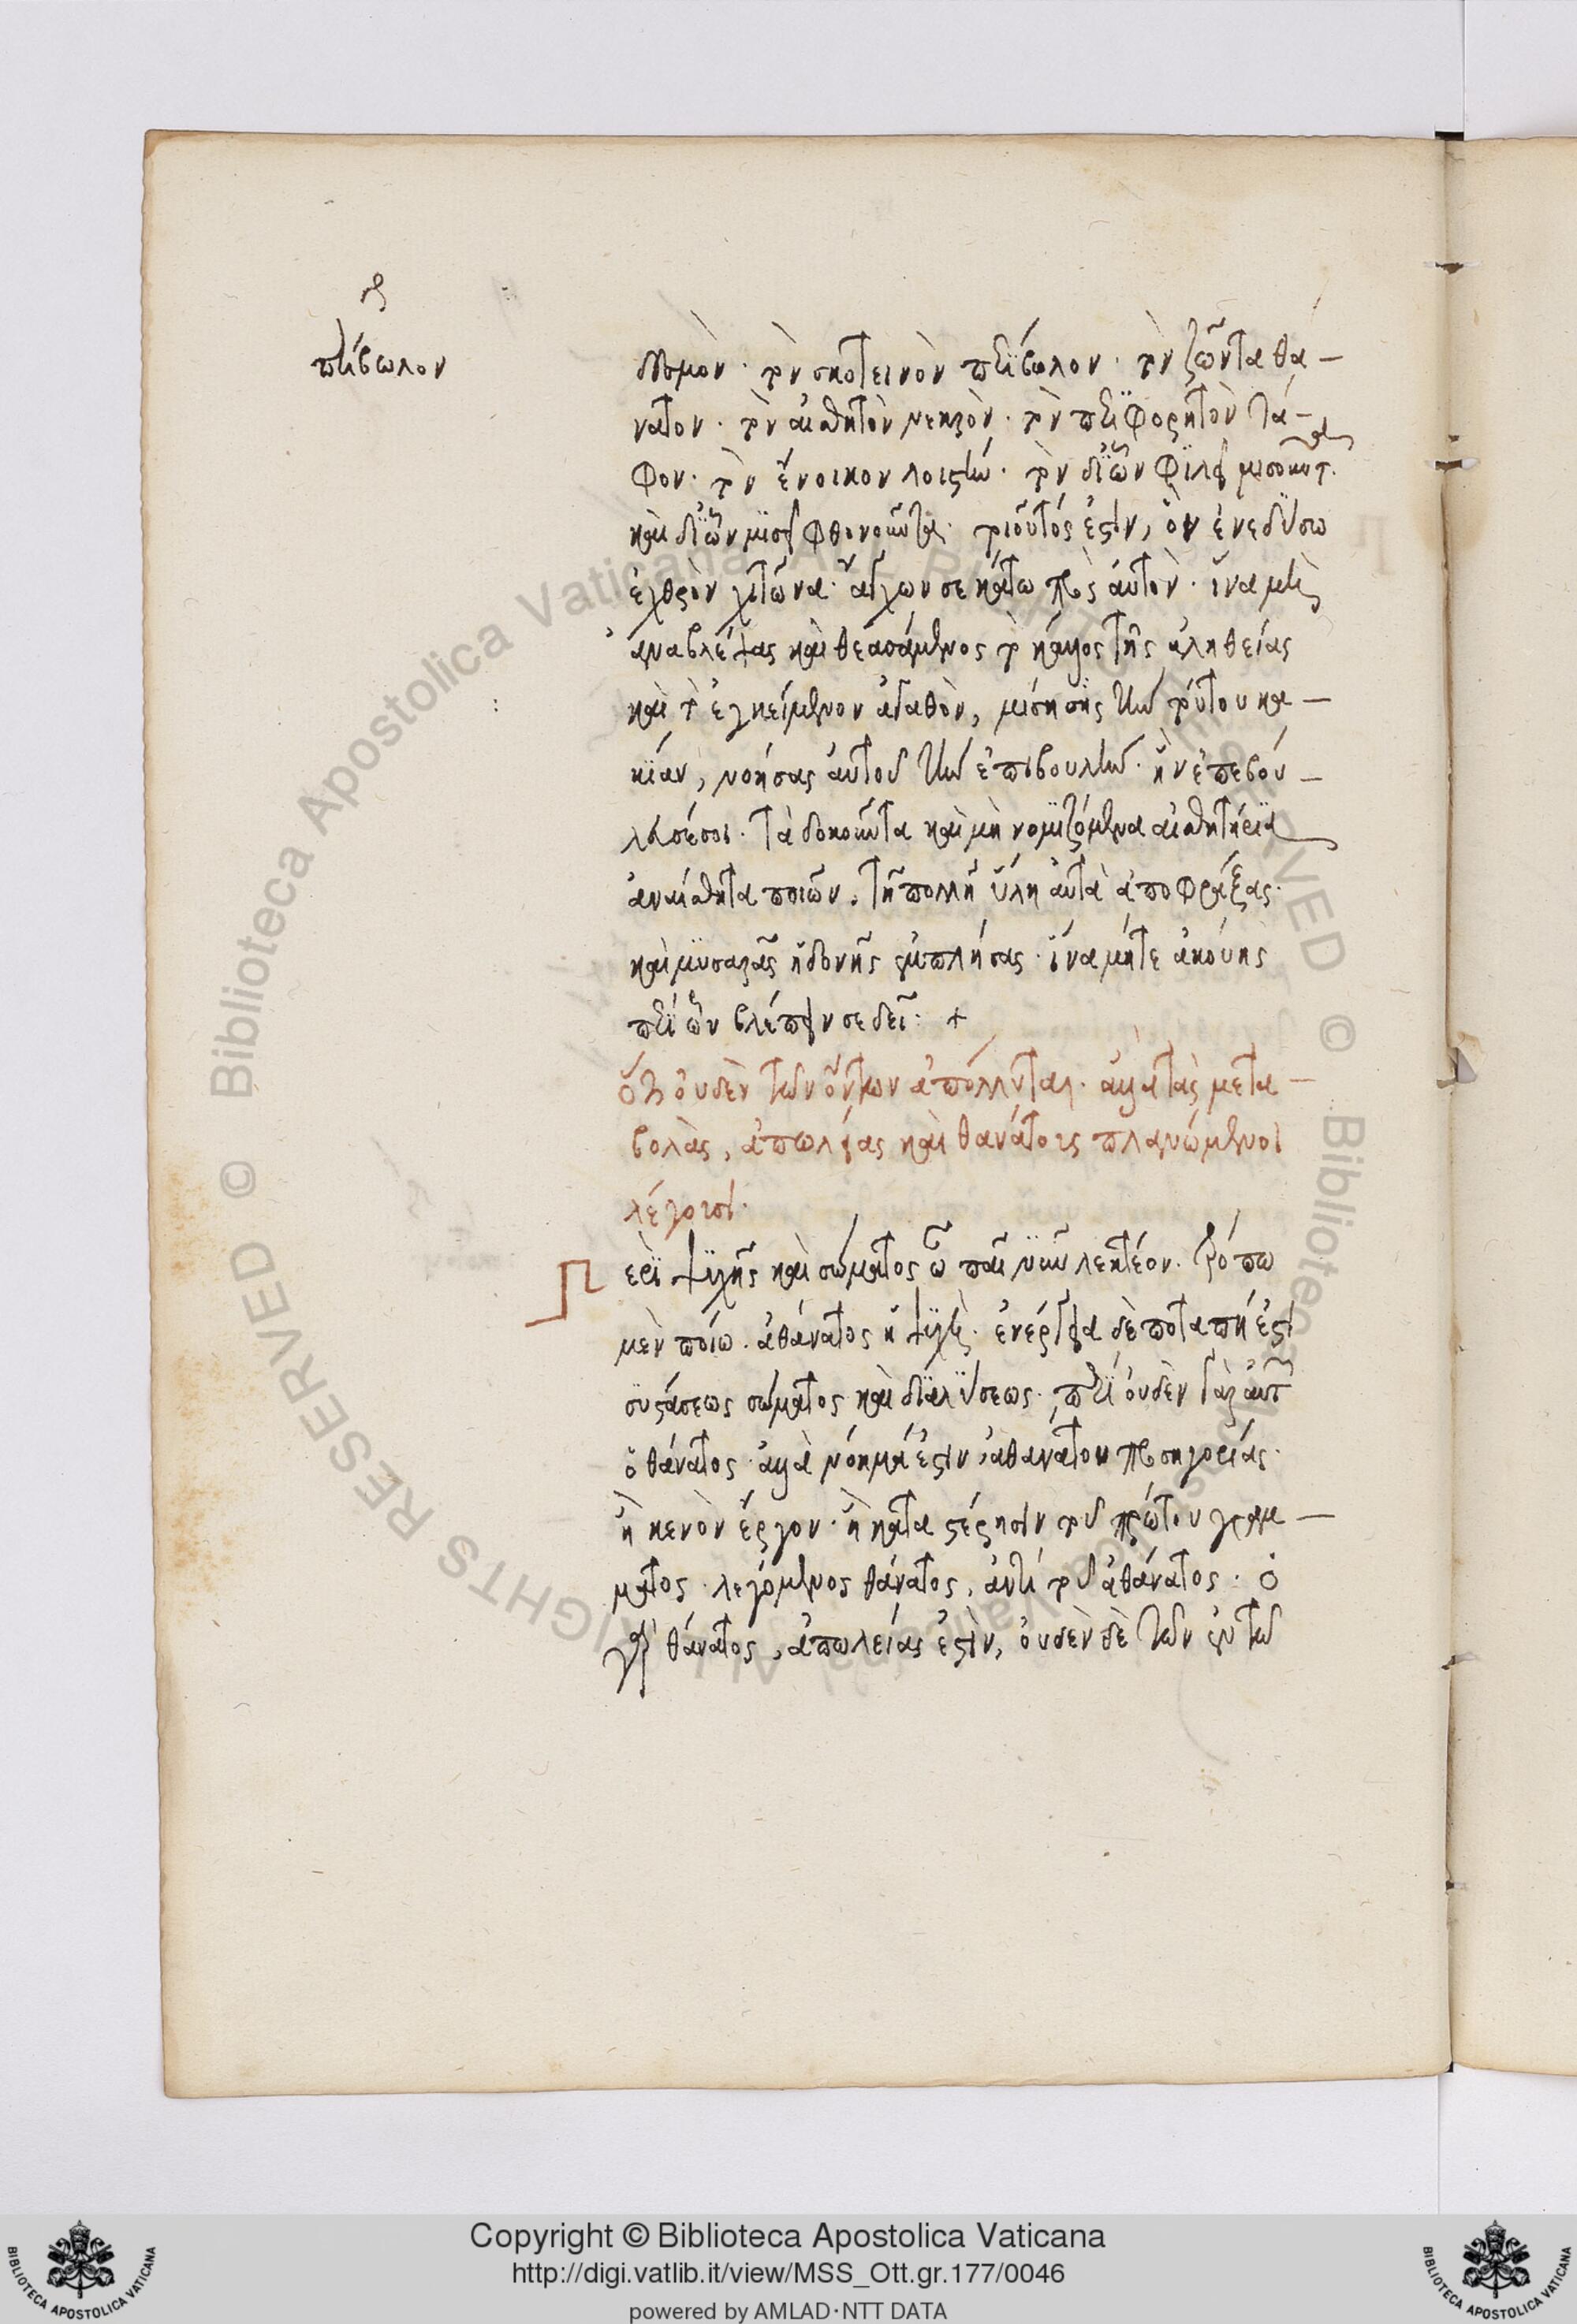 περίβωλον
δεσμὸν· τὸν σκοτεινὸν περίβωλον· τὸν ζῶντα θά-
νατον· τὸν αἰσθητὸν νεκρὸν· τὸν περιφόρητὸν τά-
φον· τὸν ἔνοικον ληστὴν· τὸν δι' ὧν φιλεῖ μισοῦντα
καὶ δι' ὧν μισεῖ φθονοῦντα· τοιοῦτός ἐστιν, ὃν ἐνεδύσω
ἐχθρὸν χιτῶνα· ἄγχων σε κάτω πρὸς αὐτὸν· ἵνα μὴ
ἀναβλέψας καὶ θεασάμενος τὸ κάλλος τῆς ἀληθείας
καὶ τὸ ἐγκείμενον ἀγαθὸν, μισήσῃς τὴν τούτου κα-
κίαν, νοήσας αὐτοῦ τὴν ἐπιβουλὴν· ἣν ἐπεβού-
λευσέ σοι· τὰ δοκοῦντα καὶ μὴ νομιζόμενα αἰσθητήρια
ἀναίσθητα ποιῶν, τῇ πολλῇ ὕλῃ αὐτὰ ἀποφράξας·
καὶ μυσαρᾶς ἡδονῆς ἐμπλήσας· ἵνα μήτε ἀκούῃς
περὶ ὧν βλέπειν σε δεῖ· +
ὅτι οὐδὲν τῶν ὄντων ἀπόλλυται· ἀλλὰ τὰς μετα-
βολὰς, ἀπωλείας καὶ θανάτους πλανώμενοι
λέγουσι·
Περὶ ψυχῆς καὶ σώματος ὦ παῖ νῦν λεκτέον· τρόπῳ
μὲν ποίῳ· ἀθάνατος ἡ ψυχὴ· ἐνέργεια δὲ ποταπή ἐστι
συστάσεως σώματος καὶ διαλύσεως· περὶ οὐδὲν γὰρ αὐτῶν
ὁ θάνατος· ἀλλὰ νόημά ἐστιν ἀθανάτου προσηγορίας·
ἢ κενὸν ἔργον· ἢ κατὰ στέρησιν τοῦ πρώτου γράμ-
ματος· λεγόμενος θάνατος, ἀντὶ τοῦ ἀθάνατος· ὁ
γὰρ θάνατος, ἀπωλείας ἐστὶν, οὐδὲν δὲ τῶν ἐν τῷ
Copyright © Biblioteca Apostolica Vaticana
http://digi.vatlib.it/view/MSS_Ott.gr.177/0046
powered by AMLAD·NTT DATA